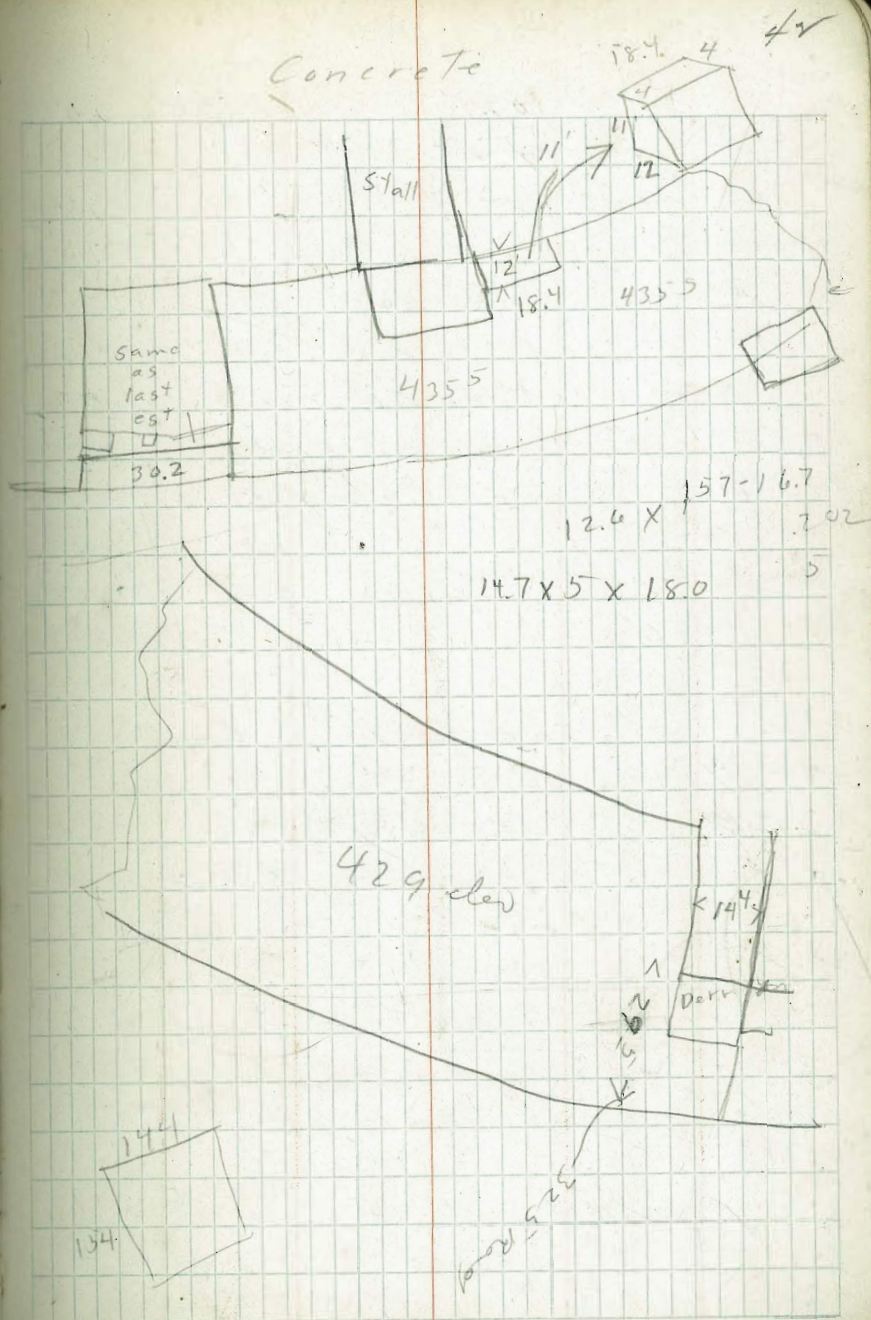 42
Concrete
18.4 4
4
11'
12
11'
Stall
12'
18.4
435⁵
same
as
last
est
435⁵
30.2
12.6 X 157-16.7
202
5
14.7 X 5 X 18.0
429 elev
14⁴
Derr
325 Rad
144
134